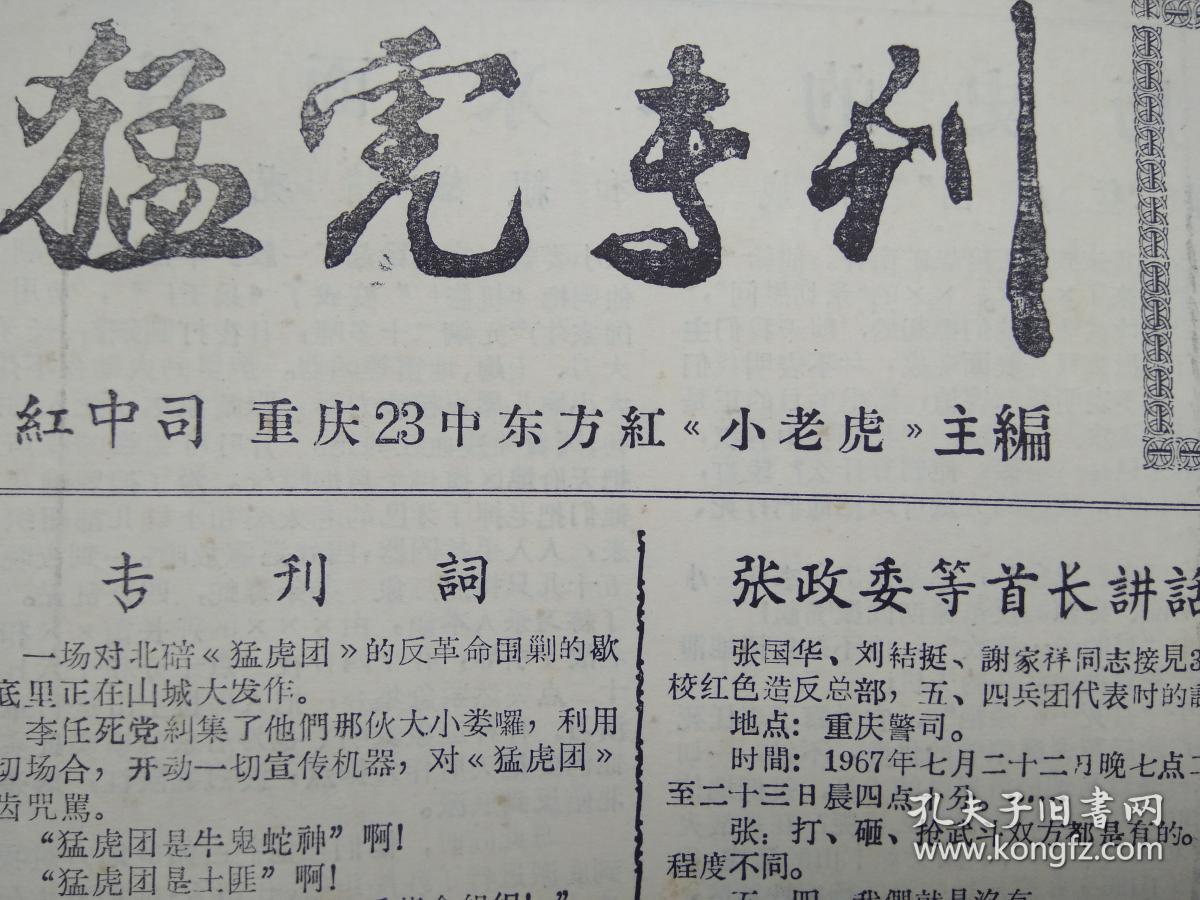 猛虎专刊
紅中司 重庆23中东方紅《小老虎》主編
专刊詞
一场对北碚《猛虎团》的反革命围剿的歇
底里正在山城大发作。
李任死党糾集了他們那伙大小娄囉，利用
切场合，开动一切宣传机器，对《猛虎团》
齿咒罵。
“猛虎团是牛鬼蛇神”啊！
“猛虎团是土匪”啊！
张政委等首长讲話
张国华、刘結挺、謝家祥同志接見3
校红色造反总部，五、四兵团代表时的
地点：重庆警司。
时間：1967年七月二十二日晚七点
至二十三日晨四点十分。
张：打、砸、抢武斗双方都是有的。
程度不同。
五、四：我們就是沒有
孔夫子旧書网
www.kongfz.com